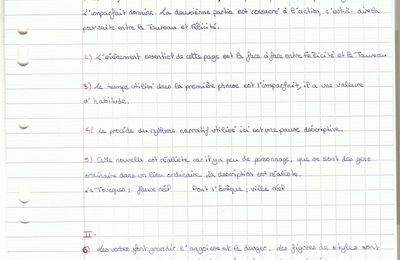 L'imparfait domine. La deuxième partie est consacré à l'action, c'est-à-dire la
poursuite entre le Taureau et Félicité.
2) L'évènement essentiel de cette page est la face à face entre Félicité et le Taureau
3) Le temps utilisé dans la première phrase est l'imparfait, il a une valeur
d'habitude.
4) Le procédé du rythme narratif utilisé ici est une pause descriptive.
5) Cette nouvelle est réaliste car il y a peu de personnage, que se sont des gens
ordinaire dans un lieu ordinaire. La description est réaliste.
La Toucques : fleuve réel Pont l'Evêque : ville réel
II -
6) Les verbes font grandir l'angoisse et le danger, des figures de styles sont